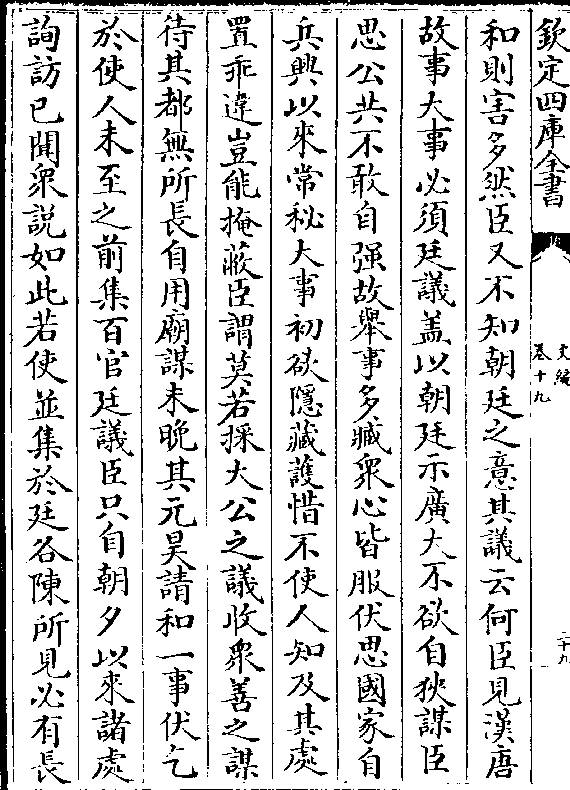 欽定四庫全書
文編
卷十九
二十九
和則害多然臣又不知朝廷之意其議云何臣見漢唐
故事大事必須廷議盖以朝廷示廣大不欲自狹謀臣
思公共不敢自强故舉事多臧衆心皆服伏思國家自
兵興以來常秘大事初欲隱藏䕶惜不使人知及其處
置乖違豈能掩蔽臣謂莫若採大公之議收衆善之謀
待其都無所長自用廟謀未晚其元昊請和一事伏乞
於使人未至之前集百官廷議臣只自朝夕以來諸處
詢訪已聞衆説如此若使並集於廷各陳所見必有長